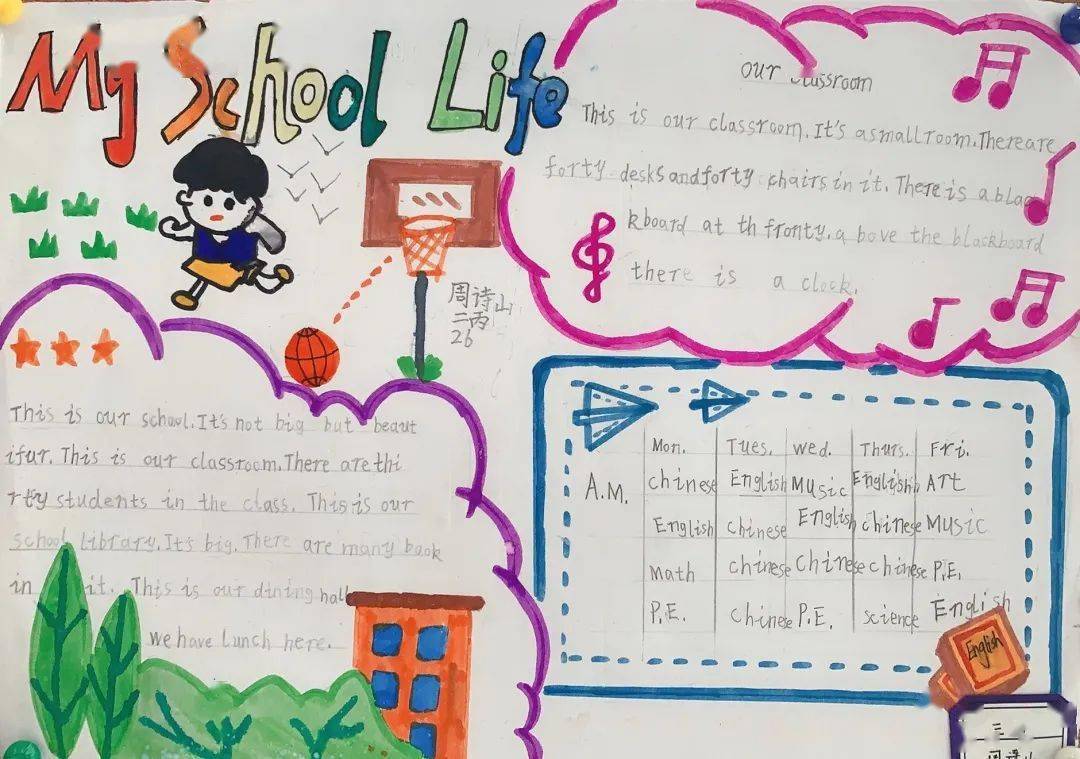 My School Life
our classroom
This is our classroom. It's a small room. There are
forty desks and forty chairs in it. There is a blac
kboard at th fronty. a bove the blackboard
there is a clock.
周诗山
二丙
26
This is our school. It's not big but beaut
ifur. This is our classroom. There are thi
rty students in the class. This is our
school library. It's big. There are many book
in it. This is our dining hall
we have lunch here.
Mon. Tues. wed. Thurs. Fri.
A.M. chinese English Music English Art
English chinese English chinese Music
Math chinese chinese chinese P.E.
P.E. chinese P.E. science English
English
三